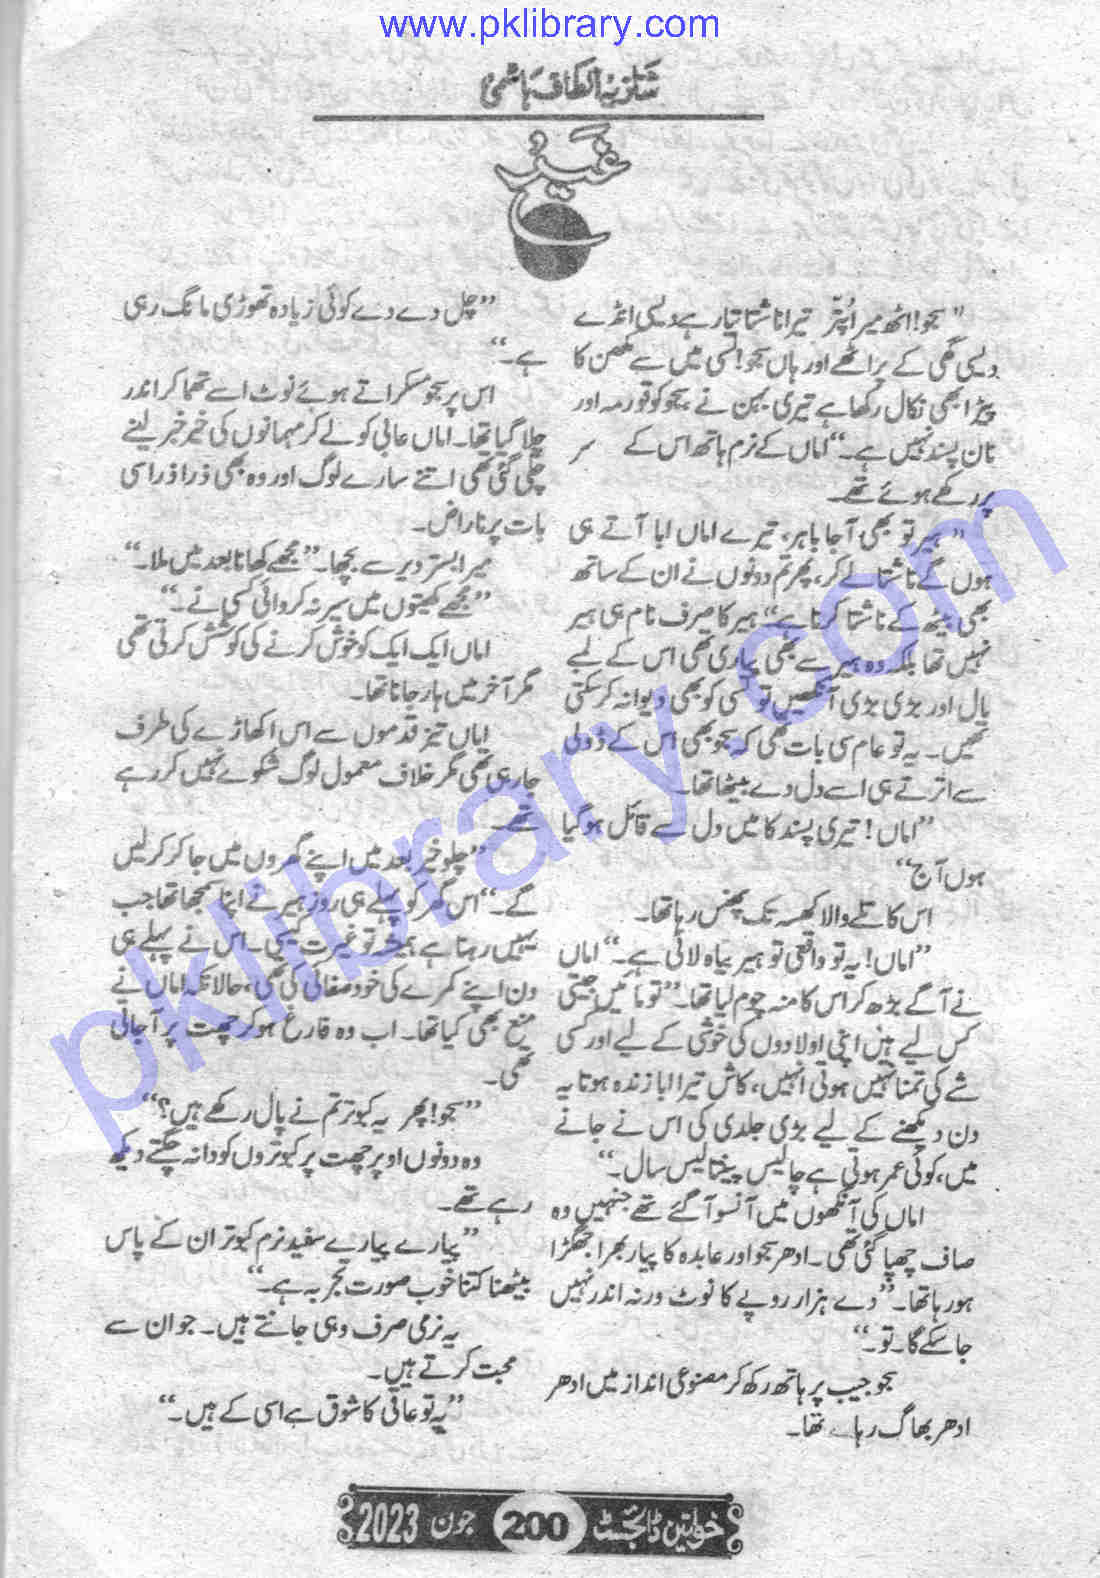 www.pklibrary.com
شازیہ الطاف ہاشمی
غیر
"بجو! اٹھ میرا پُتر تیرا ناشتا تیار ہے دیسی انڈے
دیسی گھی کے پراٹھے اور ہاں بجو! لسی میں سے مکھن کا
پیڑا بھی نکال رکھا ہے تیری بہن نے، بجو کو قورمہ اور
نان پسند نہیں ہے۔" اماں کے نرم ہاتھ اس کے سر
پر رکھے ہوئے تھے۔
"ہیر تو بھی آجا باہر، تیرے اماں ابا آتے ہی
ہوں گے ناشتا لے کر، پھر تم دونوں نے ان کے ساتھ
بھی بیٹھ کے ناشتا کرنا ہے" ہیر کا صرف نام ہی ہیر
نہیں تھا بلکہ وہ ہیر سے بھی پیاری تھی اس کے لمبے
بال اور بڑی بڑی آنکھیں تو کسی کو بھی دیوانہ کر سکتی
تھیں۔ یہ تو عام سی بات تھی کہ بجو بھی اس کے ڈولی
سے اترتے ہی اسے دل دے بیٹھا تھا۔
"اماں! تیری پسند کا میں دل سے قائل ہو گیا
ہوں آج"
اس کا تلے والا کھسہ تک پھنس رہا تھا۔
"اماں! یہ تو واقعی تو ہیر بیاہ لائی ہے۔" اماں
نے آگے بڑھ کر اس کا منہ چوم لیا تھا۔ "تو مائیں جیتی
کس لیے ہیں اپنی اولادوں کی خوشی کے لیے اور کسی
شے کی تمنا نہیں ہوتی انہیں، کاش تیرا ابا زندہ ہوتا یہ
دن دیکھنے کے لیے بڑی جلدی کی اس نے جانے
میں، کوئی عمر ہوتی ہے چالیس پینتالیس سال۔"
اماں کی آنکھوں میں آنسو آگئے تھے جنہیں وہ
صاف چھپا گئی تھی۔ ادھر بجو اور عابدہ کا پیار بھرا جھگڑا
ہو رہا تھا۔ "دے ہزار روپے کا نوٹ ورنہ اندر نہیں
جا سکے گا۔ تو۔"
بجو جیب پر ہاتھ رکھ کر مصنوعی انداز میں ادھر
ادھر بھاگ رہا ہے تھا۔
"چل دے دے کوئی زیادہ تھوڑی مانگ رہی
ہے۔"
اس پر بجو مسکراتے ہوئے نوٹ اسے تھما کر اندر
چلا گیا تھا۔ اماں عالی کو لے کر مہمانوں کی خیر خبر لینے
چلی گئی تھی اتنے سارے لوگ اور وہ بھی ذرا ذرا سی
بات پر ناراض۔
میرا بستر دیر سے بچھا۔" مجھے کھانا بعد میں ملا۔"
"مجھے کھیتوں میں سیر نہ کروائی کسی نے۔"
اماں ایک ایک کو خوش کرنے کی کوشش کرتی تھی
مگر آخر میں ہار جانا تھا۔
اماں تیز قدموں سے اس اکھاڑے کی طرف
جا رہی تھی مگر خلاف معمول لوگ شکوے نہیں کر رہے
تھے۔
"چلو خیر بعد میں اپنے گھروں میں جا کر کر لیں
گے۔" اس گھر کو پہلے ہی روز ہیر نے اپنا سمجھا تھا جب
یہیں رہنا ہے ہمیشہ تو غیرت کیسی۔ اس نے پہلے ہی
دن اپنے کمرے کی خود صفائی کی تھی، حالانکہ اماں نے
منع بھی کیا تھا۔ اب وہ فارغ ہو کر چھت پر آجاتی
تھی۔
"بجو! پھر یہ کبوتر تم نے پال رکھے ہیں؟"
وہ دونوں اوپر چھت پر کبوتروں کو دانہ چگتے دیکھ
رہے تھے۔
"پیارے پیارے سفید نرم کبوتر ان کے پاس
بیٹھنا کتنا خوب صورت تجربہ ہے۔"
یہ نرمی صرف وہی جانتے ہیں۔ جو ان سے
محبت کرتے ہیں۔
"یہ تو عافی کا شوق ہے اسی کے ہیں۔"
خواتین ڈائجسٹ 200 جون 2023
pklibrary.com